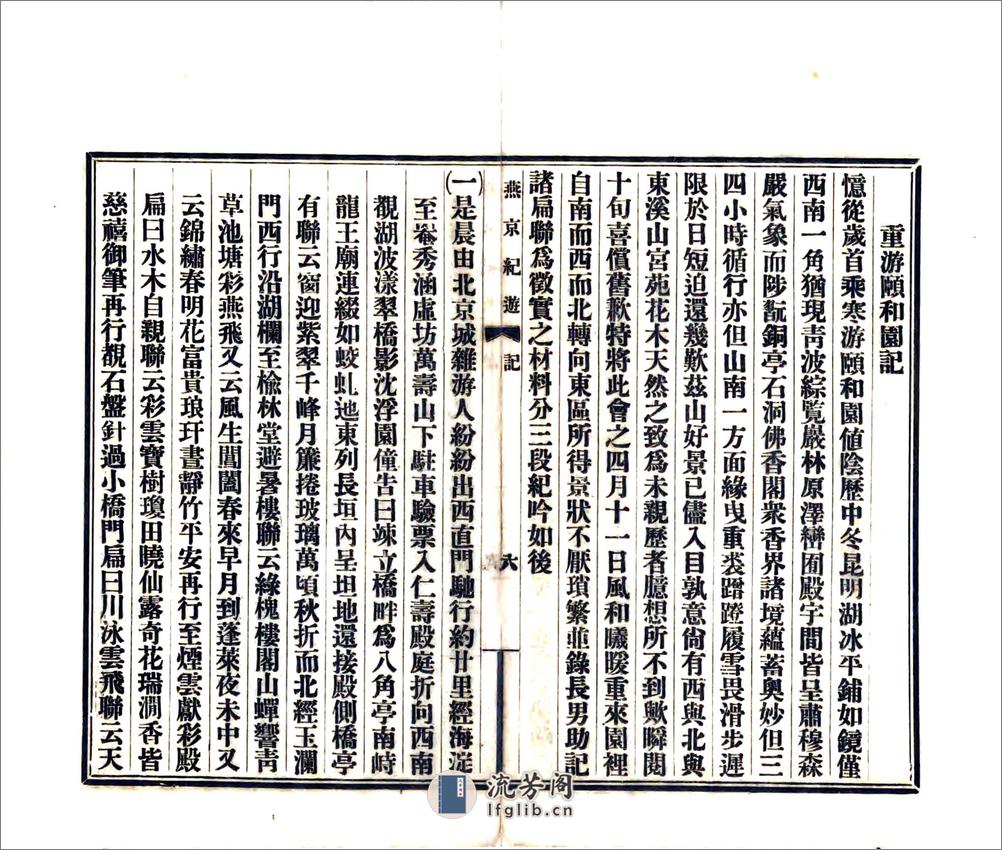 重游頤和園記
憶從歲首乘寒游頤和園値陰歷中冬昆明湖冰平鋪如鏡僅
西南一角猶現靑波綜覽巖林原澤巒囿殿宇間皆呈肅穆森
嚴氣象而陟翫銅亭石洞佛香閣衆香界諸境蘊蓄奧妙但三
四小時循行亦但山南一方面緣曳重裘蹭蹬履雪畏滑步遲
限於日短迫還幾歎茲山好景已儘入目孰意尙有西與北與
東溪山宮苑花木天然之致爲未親歷者臆想所不到歟瞬閱
十旬喜償舊歉特將此會之四月十一日風和曦暖重來園裡
自南而西而北轉向東區所得景狀不厭瑣繁並錄長男助記
諸扁聯爲徵實之材料分三段紀吟如後
燕京紀遊 記 六
(一)是晨由北京城雜游人紛紛出西直門馳行約廿里經海淀
至峚秀涵虛坊萬壽山下駐車驗票入仁壽殿庭折向西南
觀湖波漾翠橋影沈浮園僮告曰竦立橋畔爲八角亭南峙
龍王廟連綴如蛟虬迆東列長垣內呈坦地還接殿側橋亭
有聯云窗迎紫翠千峰月簾捲玻璃萬頃秋折而北經玉瀾
門西行沿湖欄至楡林堂避暑樓聯云綠槐樓閣山蟬響靑
草池塘彩燕飛又云風生閶闔春來早月到蓬萊夜未中又
云錦繡春明花富貴琅玕晝靜竹平安再行至煙雲獻彩殿
扁曰水木自親聯云彩雲寶樹瓊田曉仙露奇花瑞澗香皆
慈禧御筆再行覩石盤針過小橋門扁曰川泳雲飛聯云天
流芳阁
lfglib.cn